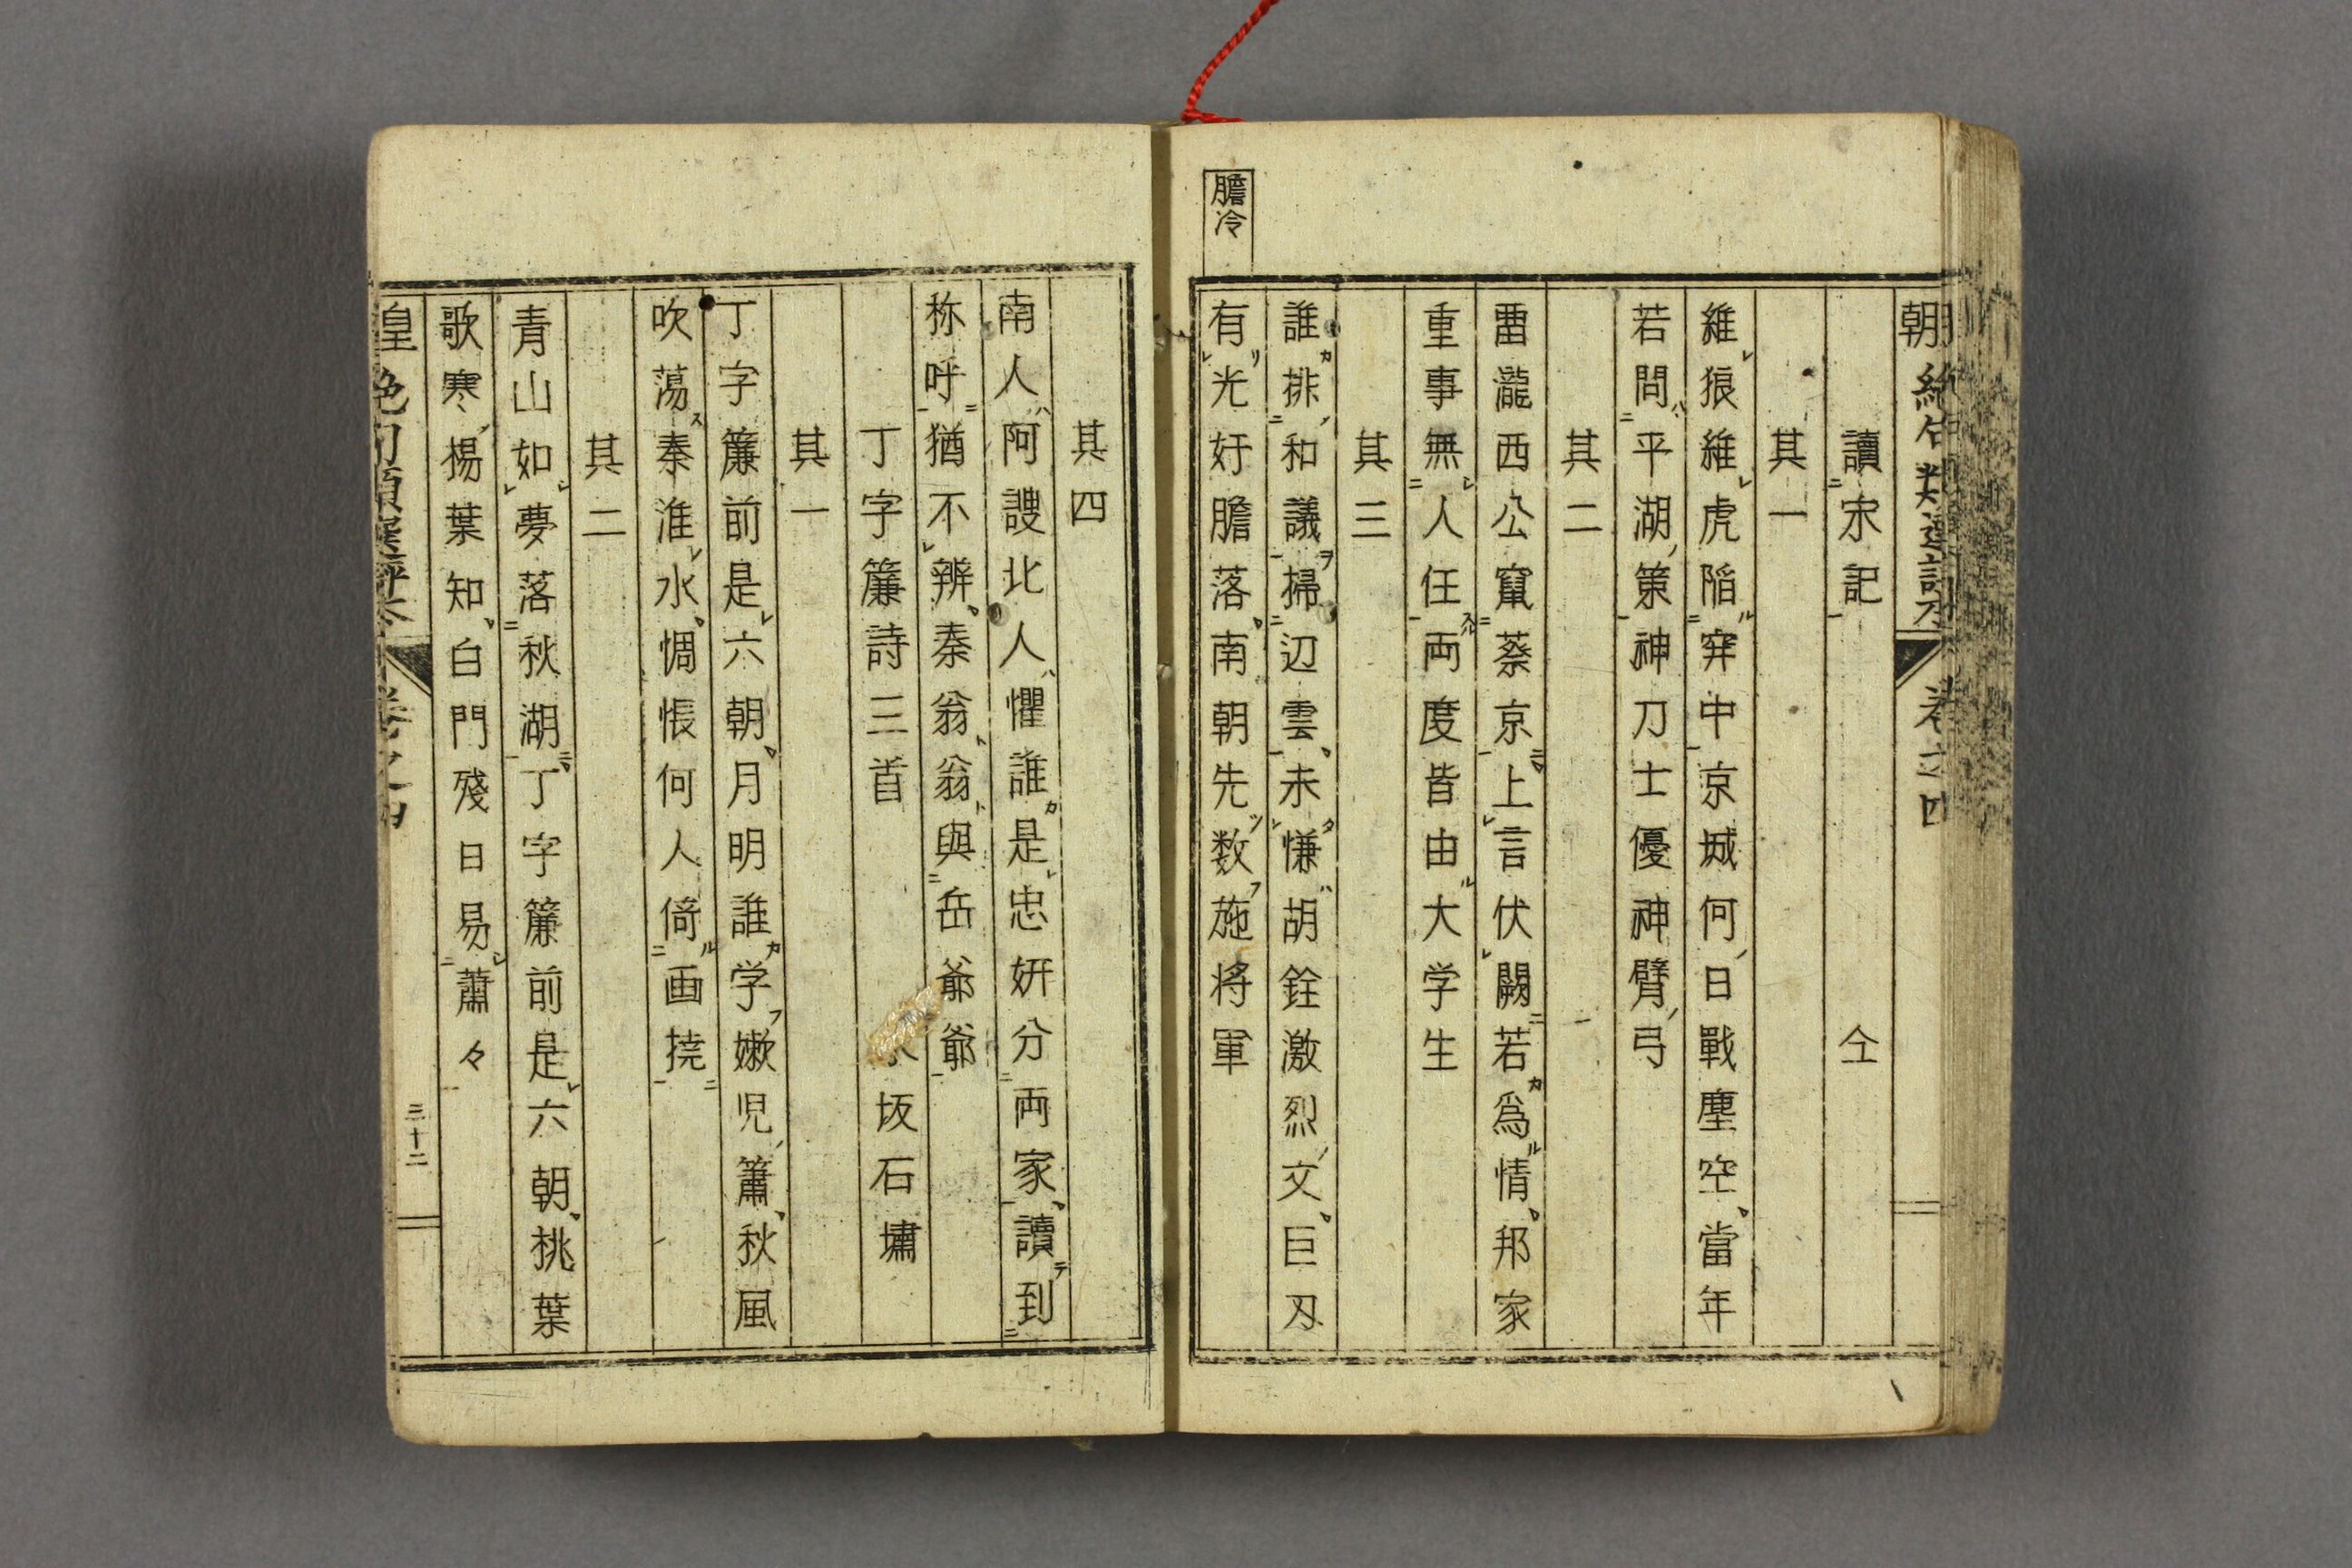 膽冷
讀宋記　仝
其一
維狼維虎陥穽中京城何日戰塵空當年
若問平湖策神刀士優神臂弓
其二
雷瀧西公竄蔡京上言伏闕若爲情邦家
重事無人任両度皆由大学生
其三
誰排和議掃辺雲未慊胡銓激烈文巨刄
有光奸膽落南朝先数施将軍
其四
南人阿謏北人懼誰是忠姸分両家讀到
称呼猶不辨秦翁翁與岳爺爺
丁字簾詩三首　坂石壖
其一
丁字簾前是六朝月明誰学嫩児簫秋風
吹蕩秦淮水惆悵何人倚画撓
其二
青山如夢落秋湖丁字簾前是六朝桃葉
歌寒楊葉知白門殘日易蕭々
三十二